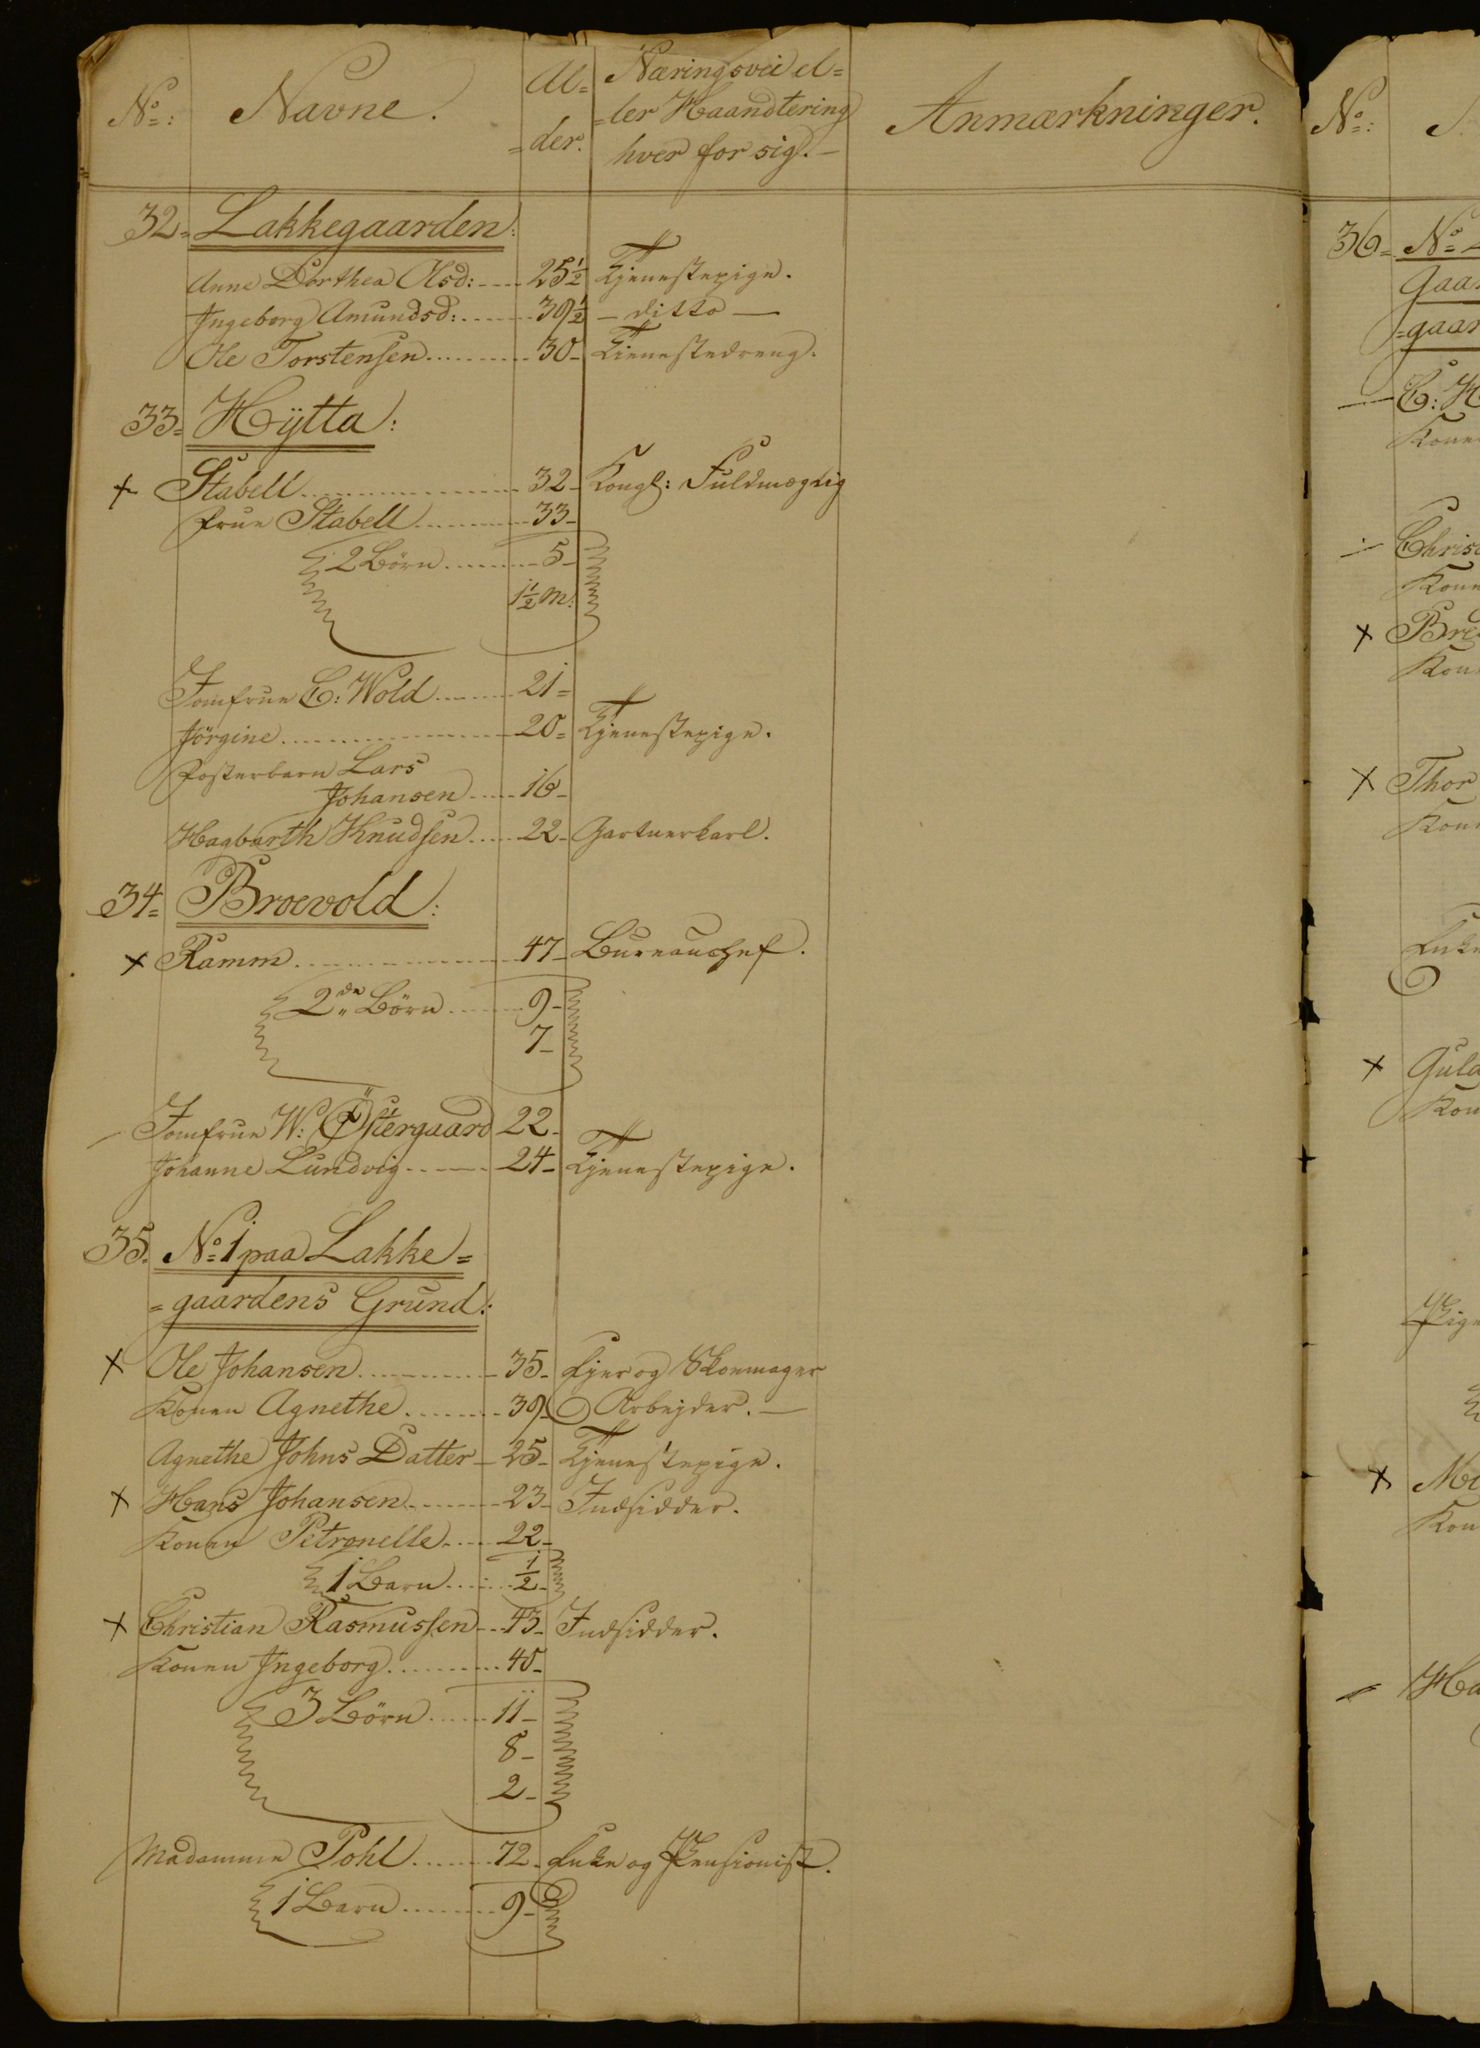 No: Navne. Al=der. Næringsvei el=ler Haandtering hver for sig. Anmærkninger.
32= Lakkegaarden:
Anne Dorthea Olsd: 25½ Tjenestepige.
Ingeborg Amundsd: 39½ — ditto —
Ole Torstensen 30- Tienestedreng.
33= Hÿtta:
x Stabell 32- Kongl: Fuldmægtig
Frue Stabell 33-
2 Börn 5-
1½ M:
Jomfrue C: Wold 21=
Jörgine 20= Tjenestepige.
Fosterbarn Lars
Johansen 16-
Hagbarth Knudsen 22- Gartnerkarl.
34= Broevold:
x Ramm 47- Bureauchef.
2de Börn 9-
7-
Jomfrue W: Östergaard 22-
Johanne Lundvig 24- Tjenestepige.
35. No 1 paa Lakke=
=gaardens Grund:
x Ole Johansen 35- Ejer og Skoemager
Konen Agnethe 39- Arbejder. —
Agnethe Johns Datter 25- Tjenestepige.
x Hans Johansen 23- Indsidder.
Konen Petronelle 22-
1 Barn ½-
x Christian Rasmussen 43- Indsidder.
Konen Ingeborg 40-
3 Börn 11-
8-
2-
Madamme Pohl 72- Enke og Pensionist.
1 Barn 9-
No:
36= No
Gaa
=gaar
C: H
Kone
Chris
Kone
x Bre
Kon
x Thor
Kon
Enke
x Guld
Kon
Pige
x
Kon
Ha